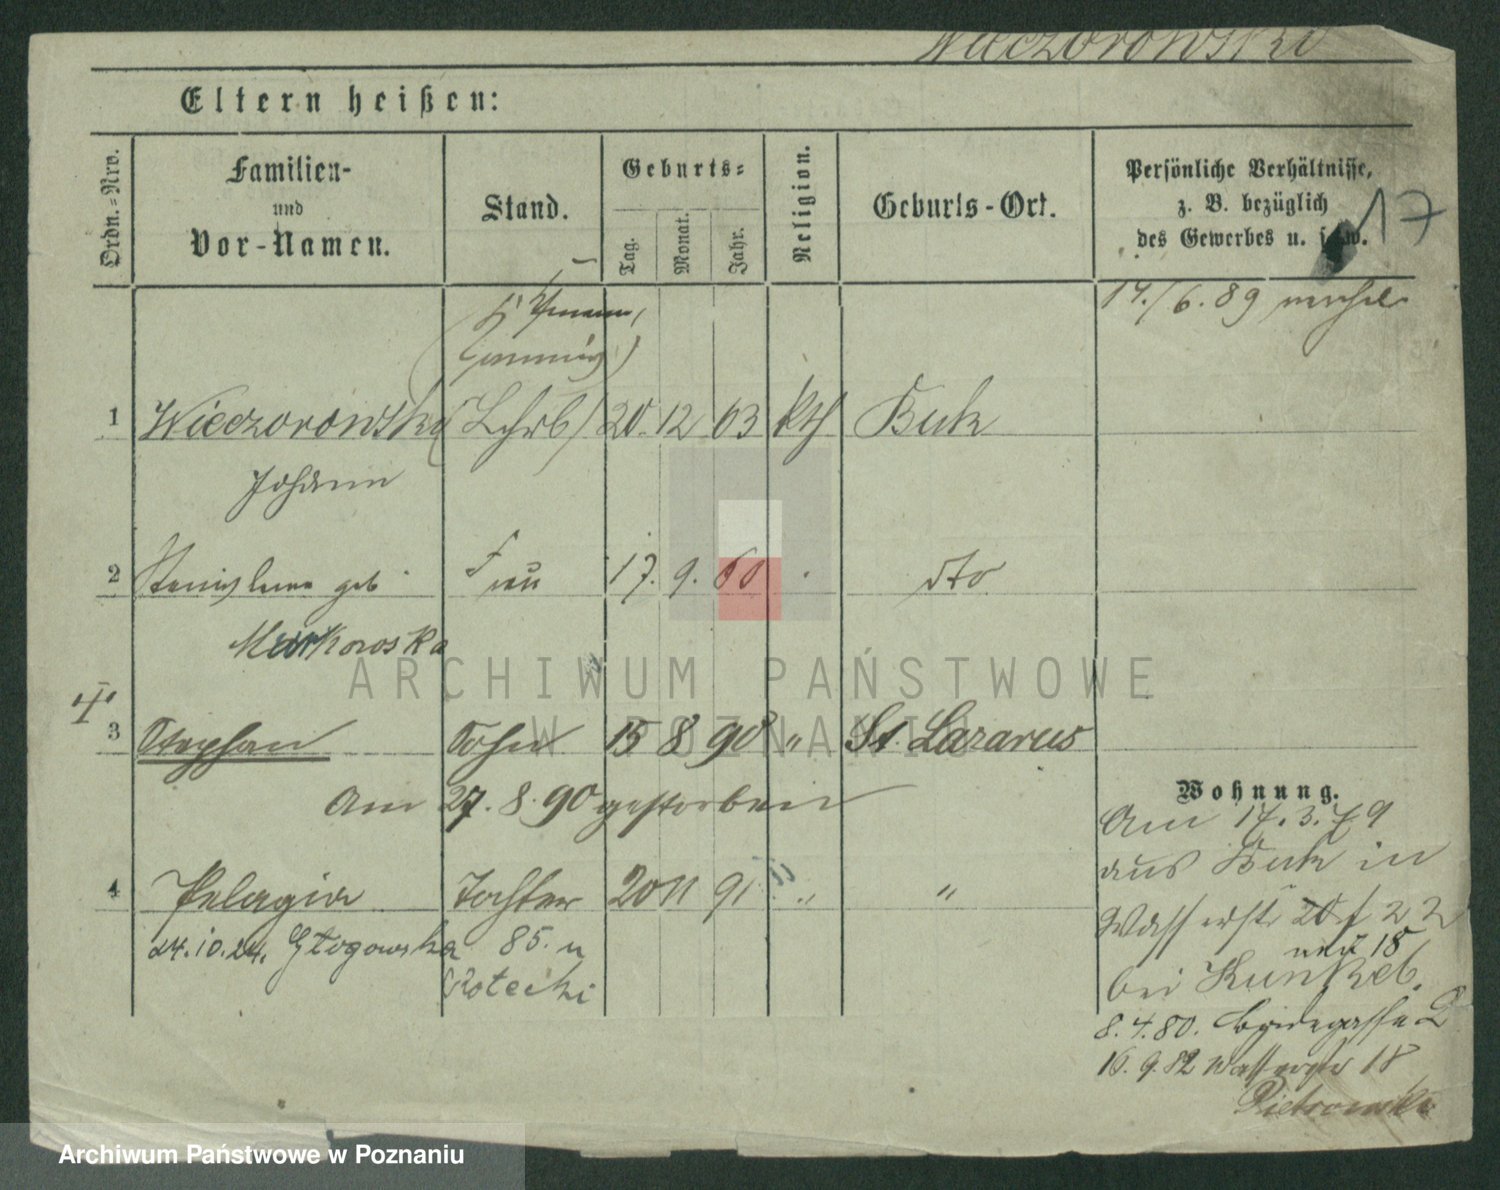 Wieczorowski
Eltern heißen:
Ordn.-Nrv.
Familien-
und
Vor-Namen.
Stand.
Geburts-
Tag.
Monat.
Jahr.
Religion.
Geburts-Ort.
Persönliche Verhältnisse,
z. B. bezüglich
des Gewerbes u. s. w.
17
14./6.89
1 Wieczorowsky 20. 12 63 kth Buk
Johann
2 Stanislawa geb Frau 17. 9. 60 dto
Murkowska
3 Stephan Sohn 15 8 90 " St. Lazarus
Am 27. 8. 90 gestorben
4 Pelagia Tochter 20 11 91 " "
24.10.24. Głogowska 85. u
Potecki
Wohnung.
Am 17. 3. 79
aus Buk in
Wasserstr 20 f 22
neu 18
bei Kunkel.
8. 4. 80. 2
16. 9. 82 Wasserstr 18
Pietrowski
ARCHIWUM PAŃSTWOWE
W POZNANIU
Archiwum Państwowe w Poznaniu